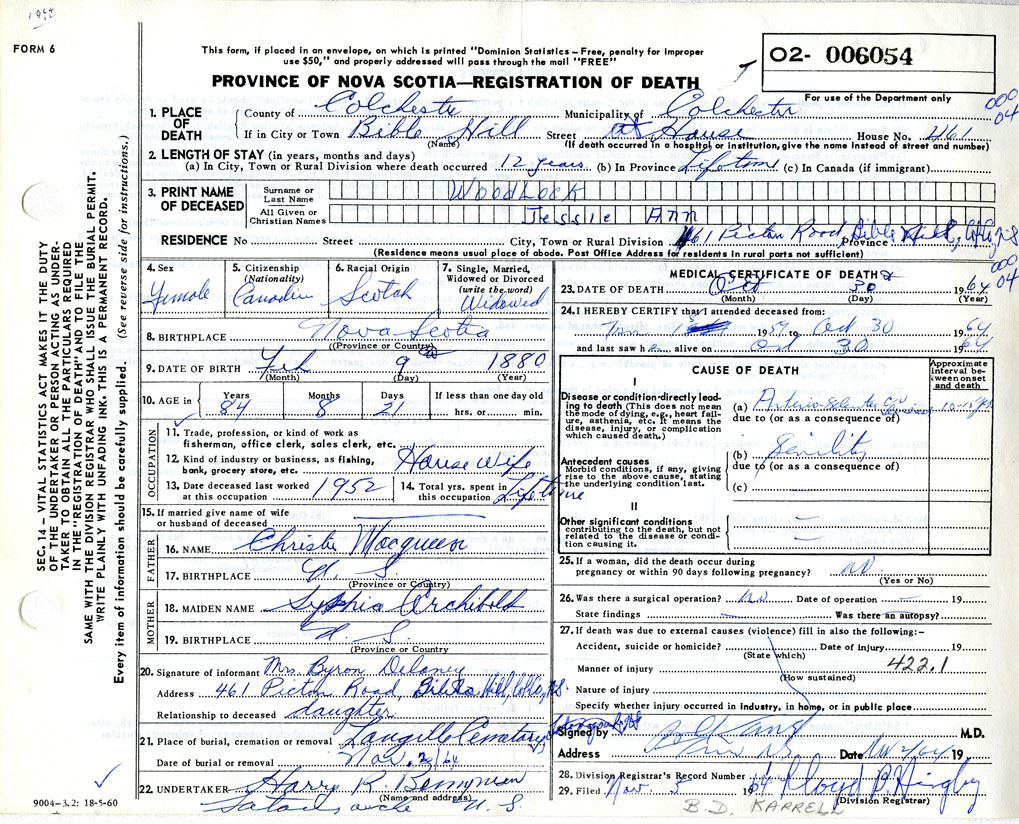 FORM 6
This form, if placed in an envelope, on which is printed "Dominion Statistics – Free, penalty for improper
use $50," and properly addressed will pass through the mail "FREE"
PROVINCE OF NOVA SCOTIA—REGISTRATION OF DEATH
O2- 006054
For use of the Department only
000
04
1. PLACE OF DEATH
County of Colchester Municipality of Colchester
If in City or Town Bible Hill Street at House House No. 461
(Name) (If death occurred in a hospital or institution, give the name instead of street and number)
2. LENGTH OF STAY (in years, months and days)
(a) In City, Town or Rural Division where death occurred 12 years (b) In Province Lifetime (c) In Canada (if immigrant)
3. PRINT NAME OF DECEASED
Surname or Last Name WOODLOCK
All Given or Christian Names Jessie Ann
RESIDENCE No Street City, Town or Rural Division 461 Picton Road, Bible Hill, Col. Co, N.S Province
(Residence means usual place of abode. Post Office Address for residents in rural parts not sufficient)
4. Sex Female
5. Citizenship (Nationality) Canadian
6. Racial Origin Scotch
7. Single, Married, Widowed or Divorced (write the word) Widowed
8. BIRTHPLACE Nova Scotia
(Province or Country)
9. DATE OF BIRTH Feb 9 1880
(Month) (Day) (Year)
10. AGE in Years 84 Months 8 Days 21 If less than one day old hrs. or min.
OCCUPATION
11. Trade, profession, or kind of work as fisherman, office clerk, sales clerk, etc.
12. Kind of industry or business, as fishing, bank, grocery store, etc. House Wife
13. Date deceased last worked at this occupation 1952
14. Total yrs. spent in this occupation Lifetime
15. If married give name of wife or husband of deceased
FATHER
16. NAME Christie Macqueen
17. BIRTHPLACE N. S.
(Province or Country)
MOTHER
18. MAIDEN NAME Syphia Archibald
19. BIRTHPLACE N. S.
(Province or Country
20. Signature of informant Mrs. Byron Delaney
Address 461 Picton Road, Bible Hill, Col. Co, N.S.
Relationship to deceased daughter
21. Place of burial, cremation or removal Langille Cemetary
Date of burial or removal Nov. 2/64
22. UNDERTAKER Harry R.
(Name and address) N. S.
9004—3.2: 18-5-60
MEDICAL CERTIFICATE OF DEATH
000
04
23. DATE OF DEATH Oct 30 1964
(Month) (Day) (Year)
24. I HEREBY CERTIFY that I attended deceased from:
1959 to Oct 30 1964
and last saw h alive on Oct 30 1964
CAUSE OF DEATH
Approximate interval between onset and death
I
Disease or condition directly leading to death (This does not mean the mode of dying, e.g., heart failure, asthenia, etc. It means the disease, injury, or complication which caused death.)
(a) 10-15 yrs
due to (or as a consequence of)
Antecedent causes
Morbid conditions, if any, giving rise to the above cause, stating the underlying condition last.
(b) Senility
due to (or as a consequence of)
(c)
II
Other significant conditions
contributing to the death, but not related to the disease or condition causing it.
25. If a woman, did the death occur during pregnancy or within 90 days following pregnancy? no
(Yes or No)
26. Was there a surgical operation? no Date of operation — 19
State findings Was there an autopsy?
27. If death was due to external causes (violence) fill in also the following:—
Accident, suicide or homicide? Date of injury 19
(State which)
Manner of injury 422.1
(How sustained)
Nature of injury
Specify whether injury occurred in industry, in home, or in public place
Signed by M.D.
Address Date Nov 2/64 19
28. Division Registrar's Record Number
29. Filed Nov. 5 1964 Lloyd
(Division Registrar)
B.D. KARRELL
SEC. 14 – VITAL STATISTICS ACT MAKES IT THE DUTY
OF THE UNDERTAKER OR PERSON ACTING AS UNDER-
TAKER TO OBTAIN ALL THE PARTICULARS REQUIRED
IN THE "REGISTRATION OF DEATH" AND TO FILE THE
SAME WITH THE DIVISION REGISTRAR WHO SHALL ISSUE THE BURIAL PERMIT.
WRITE PLAINLY WITH UNFADING INK. THIS IS A PERMANENT RECORD.
Every item of information should be carefully supplied. (See reverse side for instructions.)